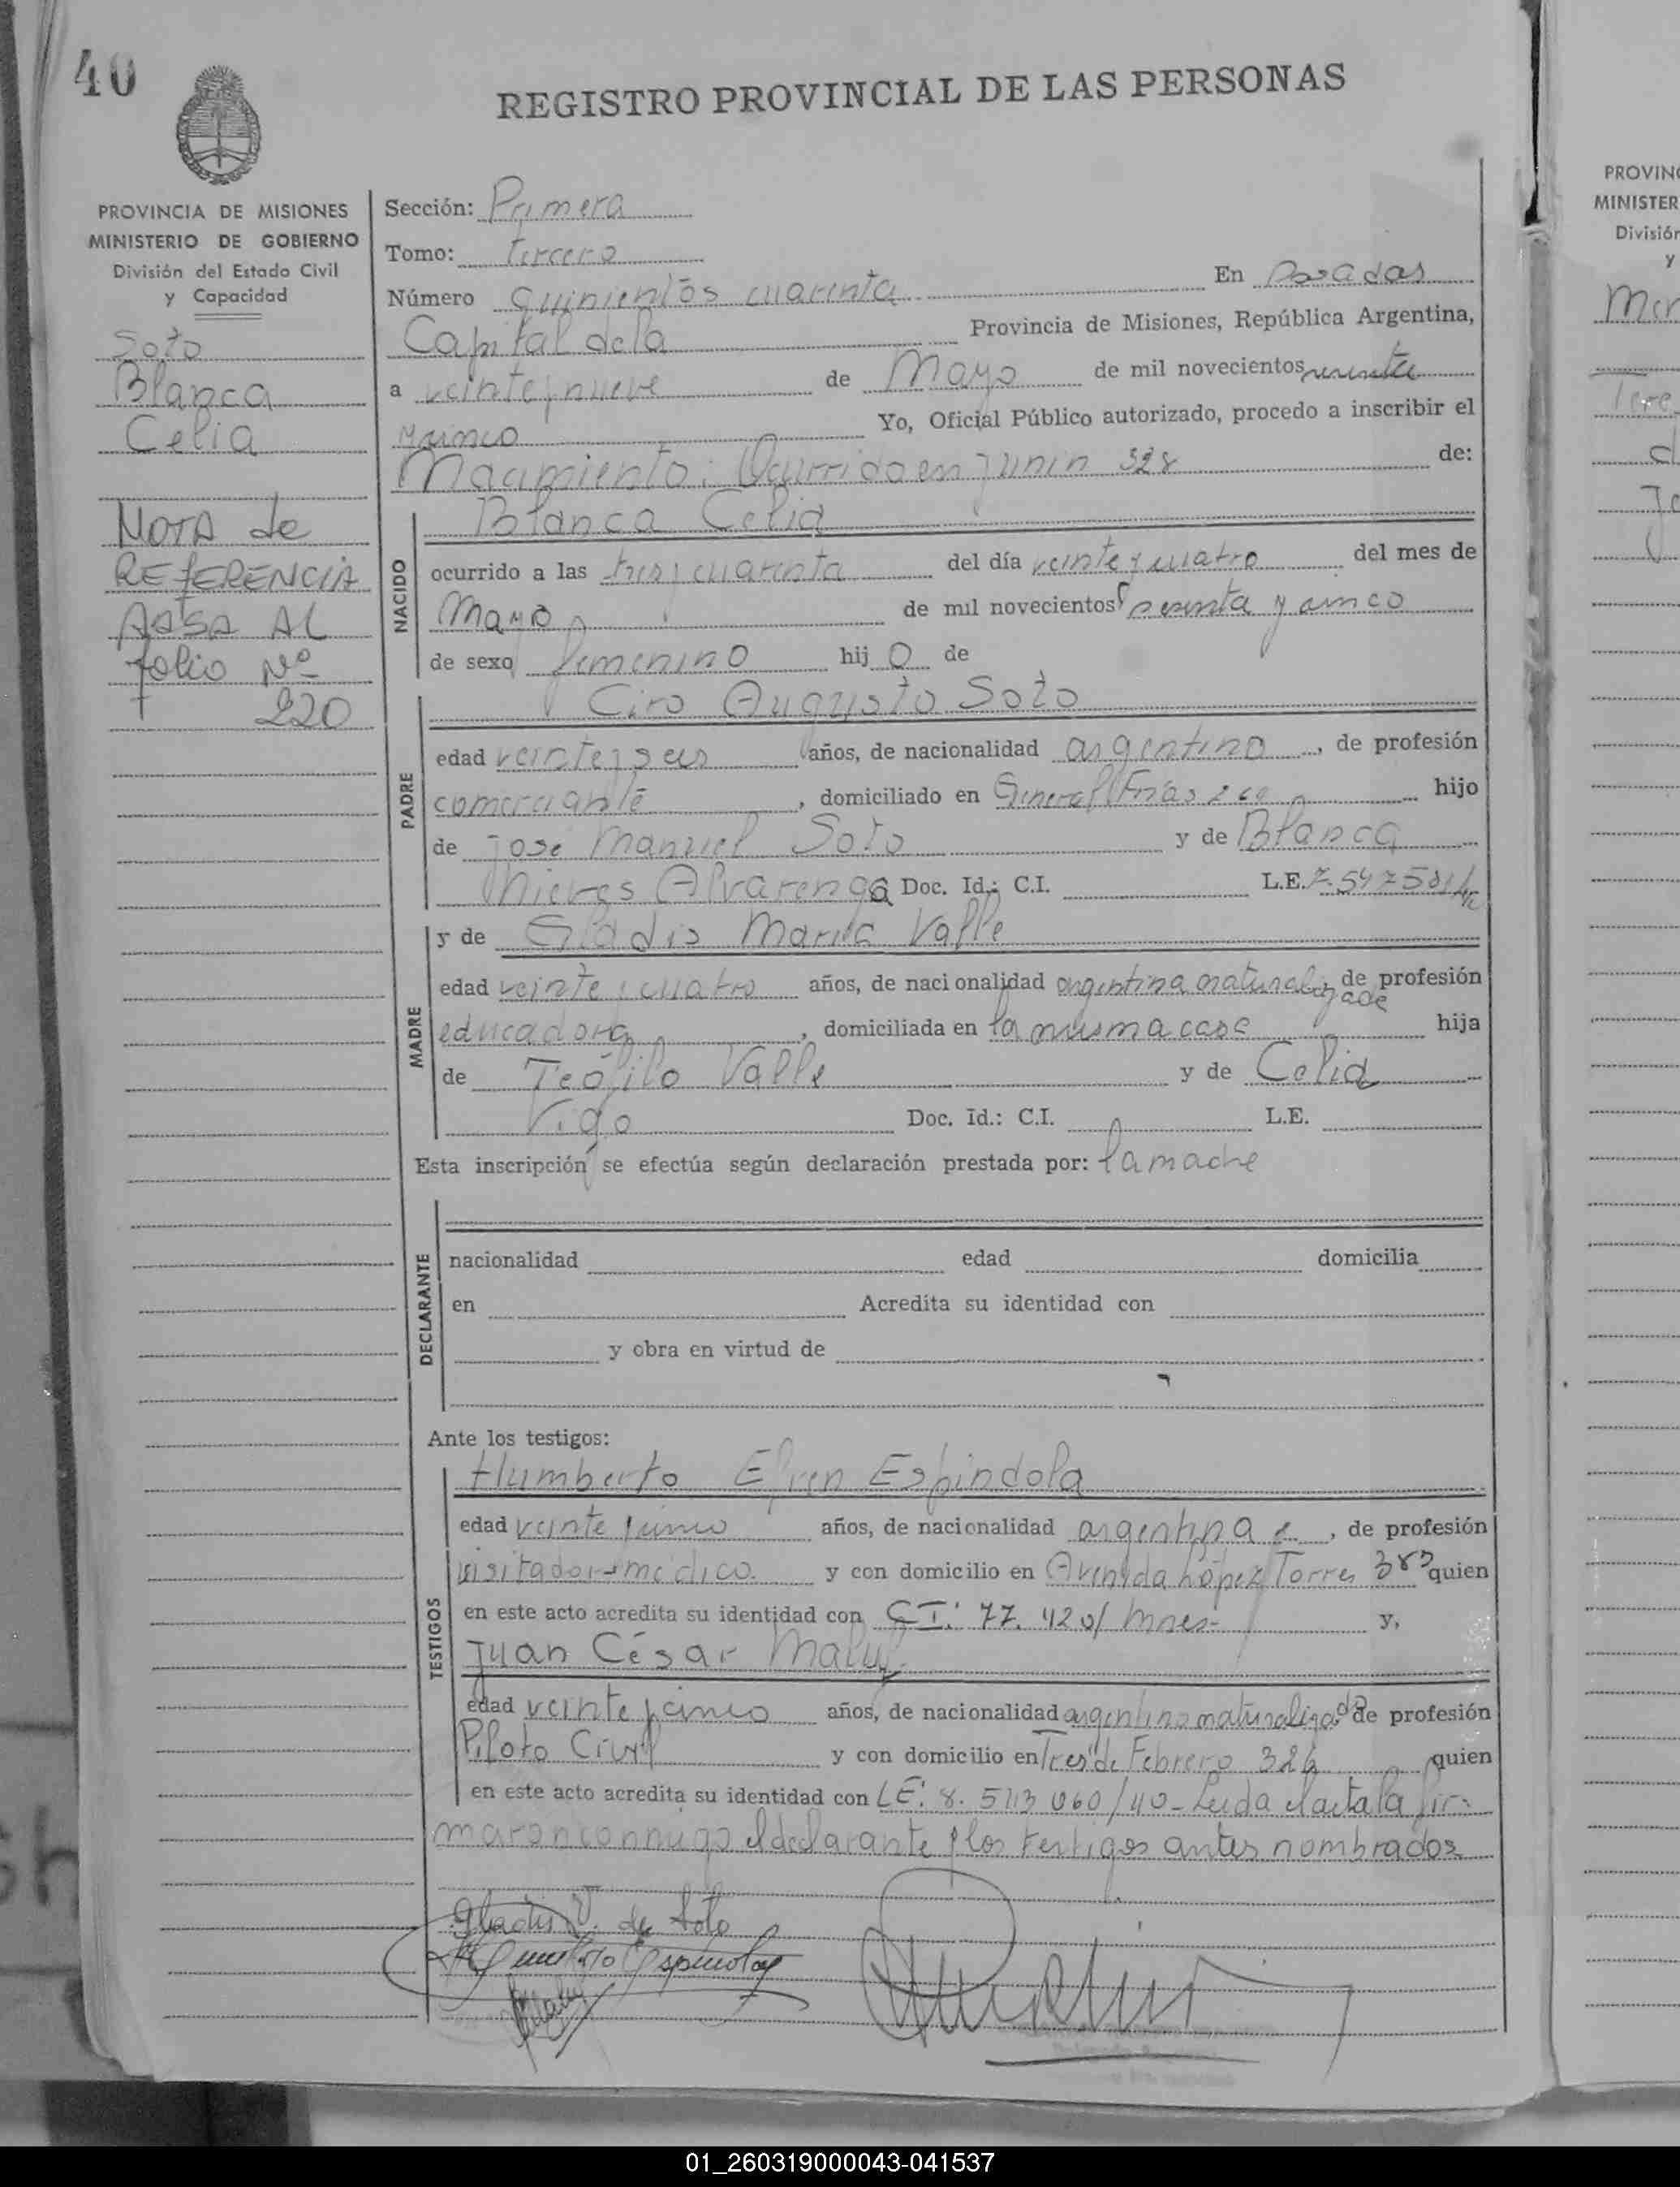 40
REGISTRO PROVINCIAL DE LAS PERSONAS
PROVINCIA DE MISIONES
MINISTERIO DE GOBIERNO
División del Estado Civil
y Capacidad
Soto
Blanca
Celia
NOTA de
REFERENCIA
PASA AL
folio Nº
220
Sección: Primera
Tomo: tercero
Número quinientos cuarenta En Posadas
Capital de la Provincia de Misiones, República Argentina,
a veinte y nueve de Mayo de mil novecientos sesenta
y cinco Yo, Oficial Público autorizado, procedo a inscribir el
Nacimiento: Ocurrido en Junin 328 de:
NACIDO
Blanca Celia
ocurrido a las tres y cuarenta del día veinte y cuatro del mes de
Mayo de mil novecientos sesenta y cinco
de sexo femenino hij o de
PADRE
Ciro Augusto Soto
edad veinte y seis años, de nacionalidad argentino, de profesión
comerciante, domiciliado en General Frías hijo
de José Manuel Soto y de Blanca
Nieves Alvarenga Doc. Id.: C.I. L.E.
MADRE
y de Gladis Valle
edad veinte y cuatro años, de nacionalidad argentina naturalizada de profesión
educadora, domiciliada en la misma casa hija
de Teófilo Valle y de Celia
Vigo Doc. Id.: C.I. L.E.
Esta inscripción se efectúa según declaración prestada por: la madre
DECLARANTE
nacionalidad edad domicilia
en Acredita su identidad con
y obra en virtud de
Ante los testigos:
TESTIGOS
Humberto Efren Espindola
edad veinte y cinco años, de nacionalidad argentina, de profesión
visitador medico y con domicilio en Avenida López Torres 383 quien
en este acto acredita su identidad con CI: 77. 420/ Mnes- y,
Juan César Maluf
edad veinte y cinco años, de nacionalidad argentino naturalizado de profesión
Piloto Civil y con domicilio en Tres de Febrero 326 quien
en este acto acredita su identidad con LE: 8. 513 060/40- Leida el acta la fir-
maron conmigo el declarante y los testigos antes nombrados
Gladis V. de Soto
Humberto Espindola
PROVIN
MINISTER
División
y
01_260319000043-041537